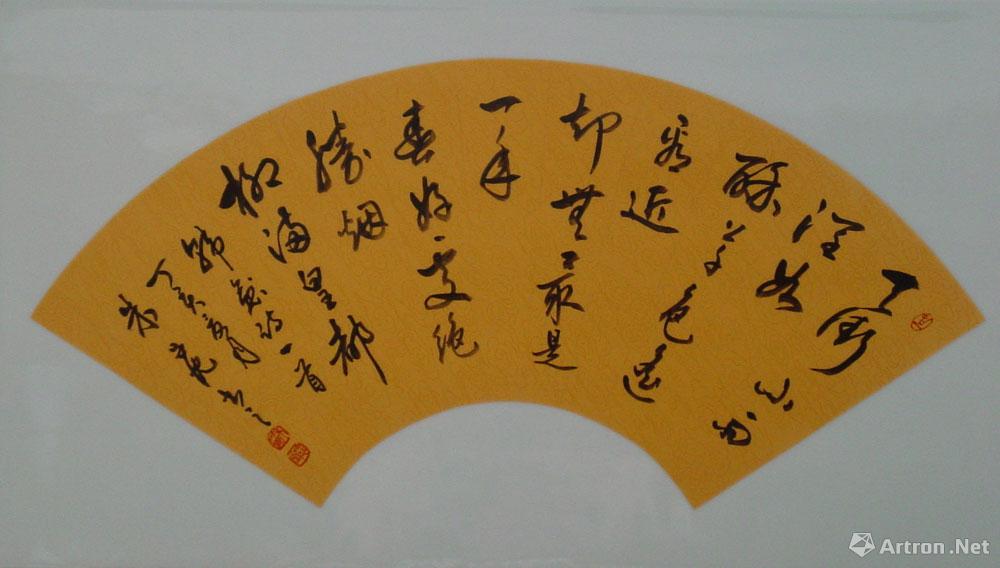 天街小雨
润如
酥草色遥
看近
却無最是
一年
春好處绝
勝烟
柳满皇都
韩愈诗一首
丁亥
书
Artron.Net